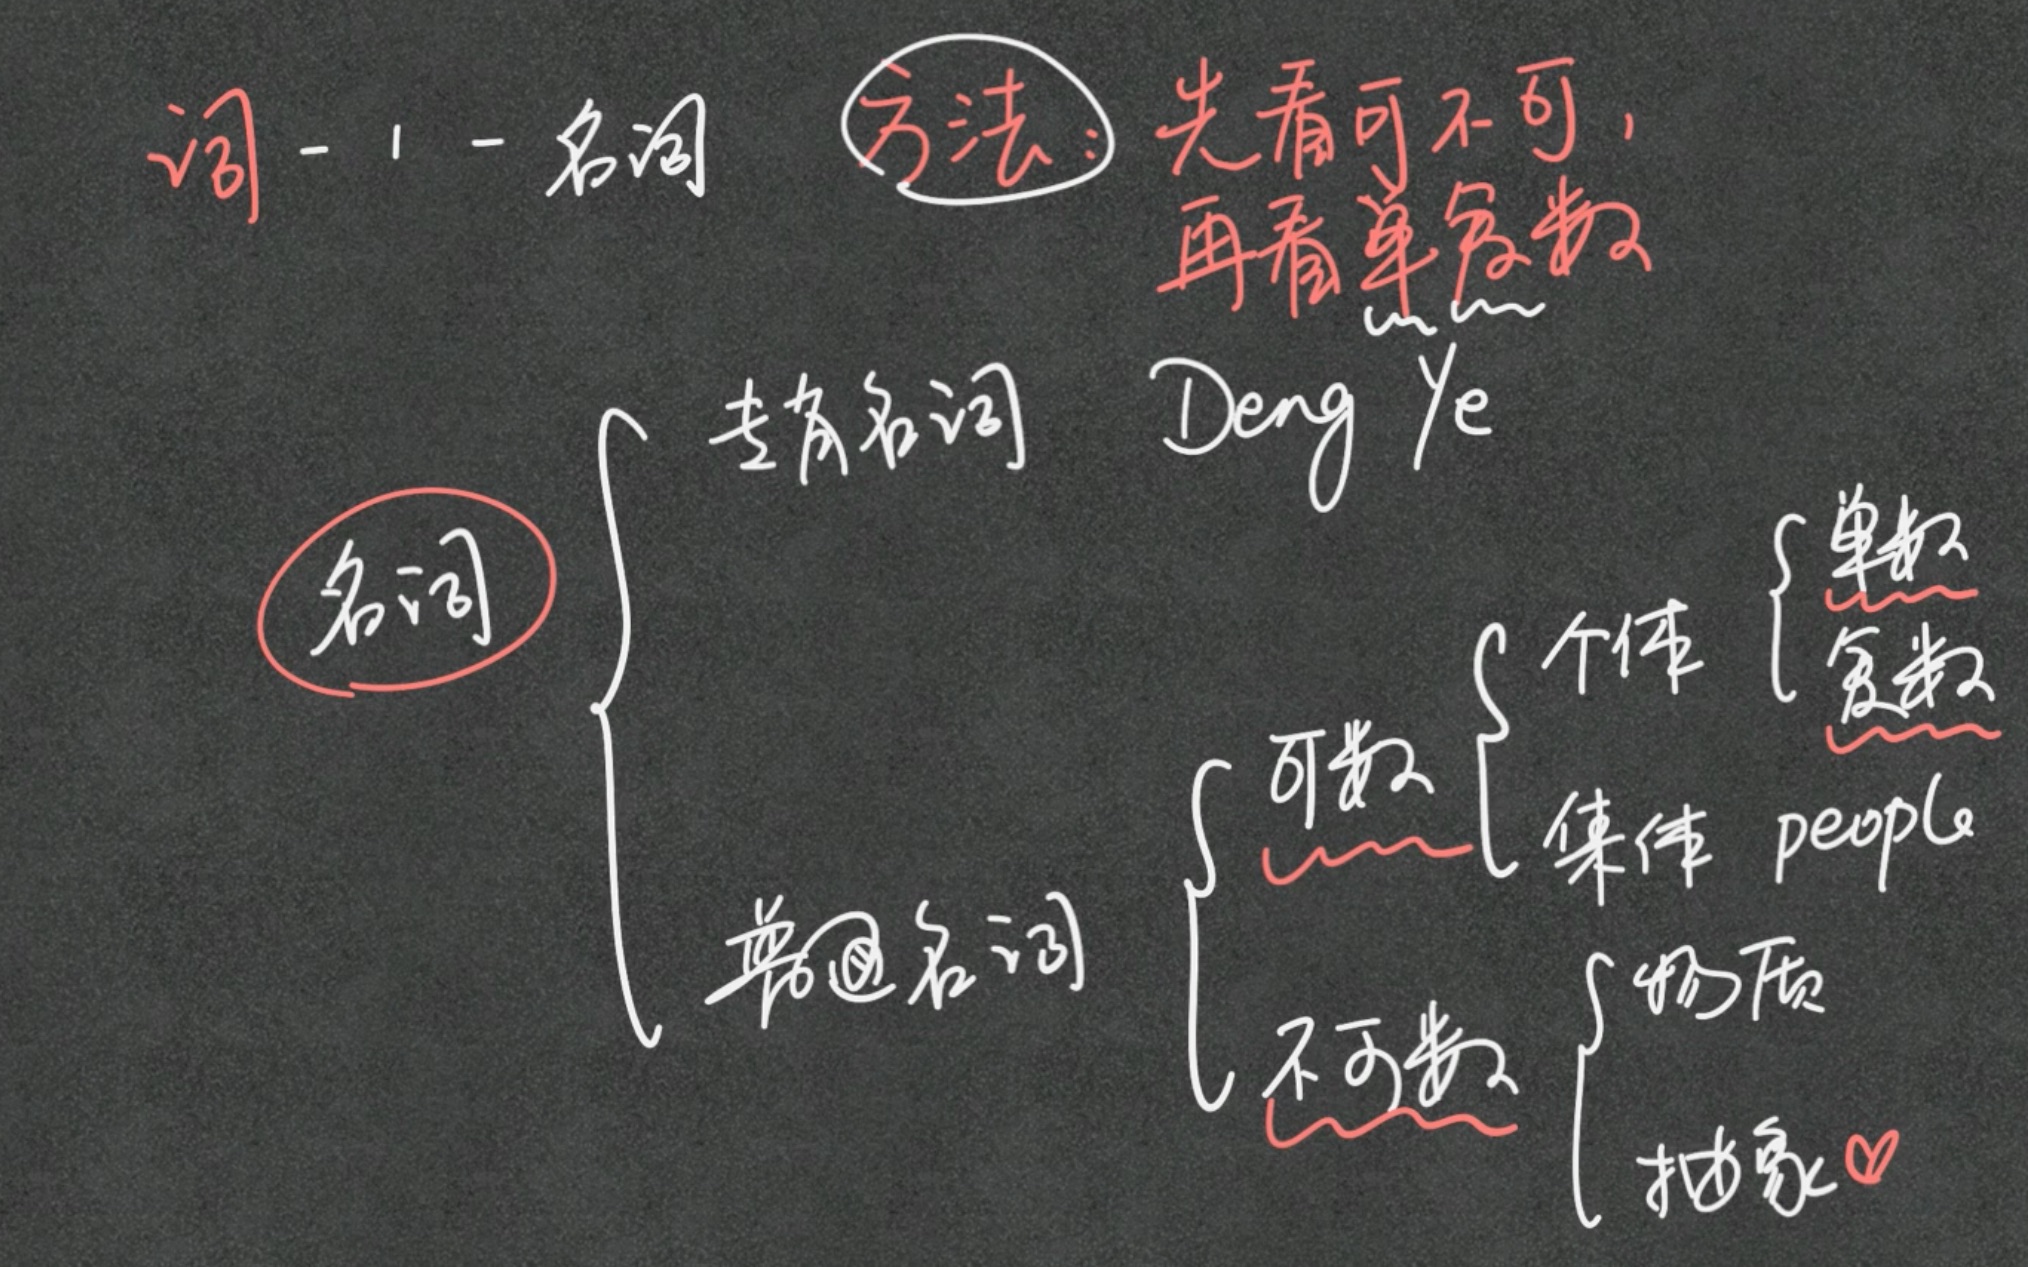 词 - 1 - 名词 方法: 先看可不可,
再看单复数
专有名词 Deng Ye
名词
单数
个体
复数
可数
集体 people
普通名词
物质
不可数
抽象